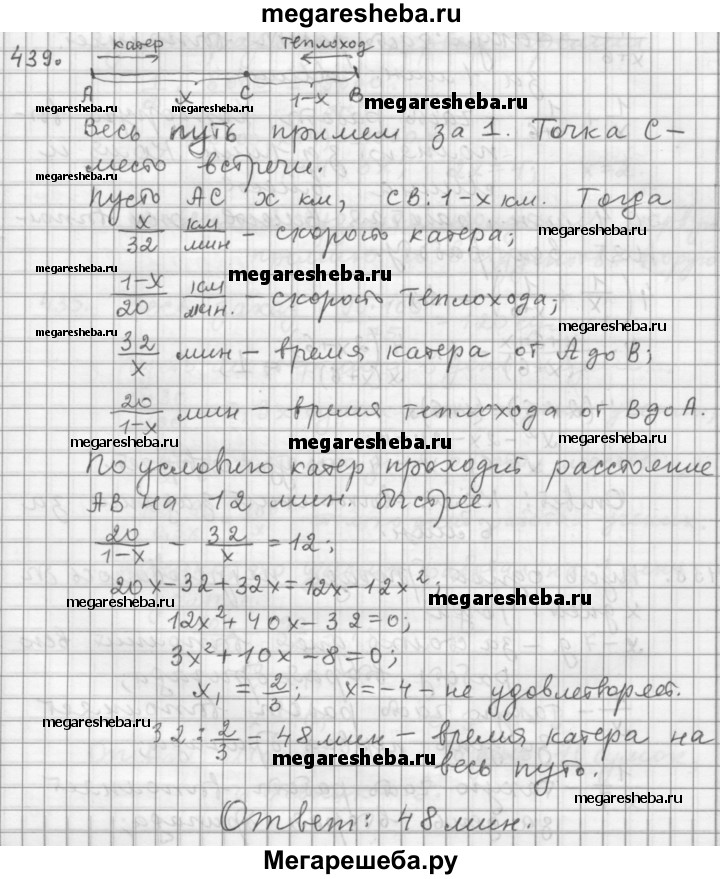 megaresheba.ru
439.
катер теплоход
A x C 1-x B
megaresheba.ru megaresheba.ru
Весь путь примем за 1. Точка С-
место встречи.
megaresheba.ru
Пусть АС х км, СВ. 1-х км. Тогда
x/32 км/мин - скорость катера;
megaresheba.ru
megaresheba.ru megaresheba.ru
1-x/20 км/мин. - скорость теплохода;
megaresheba.ru megaresheba.ru
32/x мин - время катера от А до В;
20/1-x мин - время теплохода от В до А.
megaresheba.ru megaresheba.ru megaresheba.ru
По условию катер проходит расстояние
АВ на 12 мин. быстрее.
20/1-x - 32/x = 12;
20x-32+32x=12x-12x²;
megaresheba.ru megaresheba.ru
12x²+40x-32=0;
3x²+10x-8=0;
x₁ = 2/3; x=-4 - не удовлетворяет.
megaresheba.ru
32:2/3 = 48 мин - время катера на
весь путь.
megaresheba.ru
megaresheba.ru
Ответ: 48 мин.
megaresheba.ru
Мегарешеба.ру